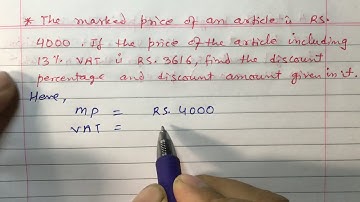 * The marked price of an article is RS.
4000. If the price of the article including
13% VAT is RS. 3616, find the discount
percentage and discount amount given in it.
Here,
MP = RS. 4000
VAT =